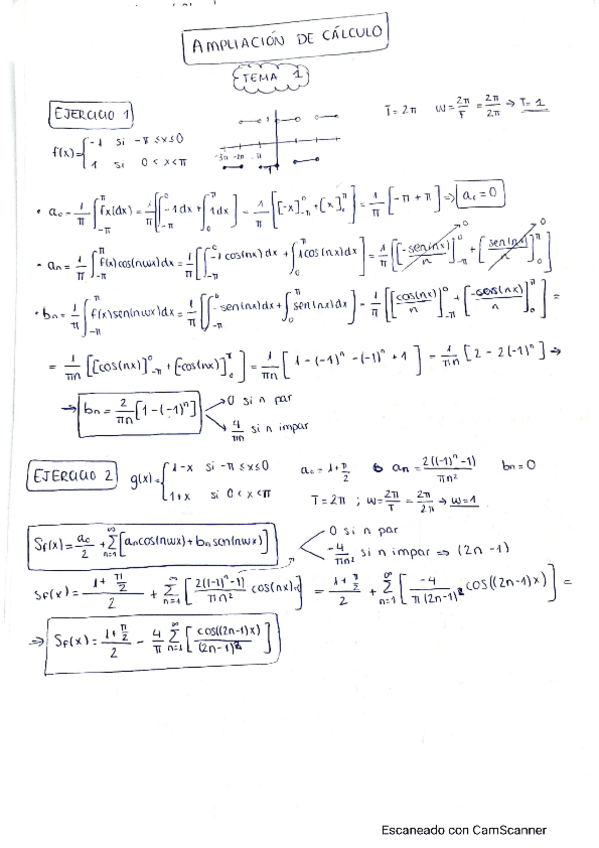 AMPLIACIÓN DE CÁLCULO
TEMA 1
EJERCICIO 1
f(x)={ -1 si -π ≤ x ≤ 0
1 si 0 < x < π
-3π -2π -π
T = 2π W = 2π/T = 2π/2π → T = 1
• a₀ = 1/π ∫_{-π}^{π} f(x)dx = 1/π [∫_{-π}^{0} -1dx + ∫_{0}^{π} 1dx] = 1/π [[-x]_{-π}^{0} + [x]_{0}^{π}] = 1/π [-π + π] ⇒ a₀ = 0
• aₙ = 1/π ∫_{-π}^{π} f(x)cos(nwx)dx = 1/π [∫_{-π}^{0} -1 cos(nx)dx + ∫_{0}^{π} 1 cos(nx)dx] = 1/π [[-sen(nx)/n]_{-π}^{0} + [sen(nx)/n]_{0}^{π}] 0 0
• bₙ = 1/π ∫_{-π}^{π} f(x)sen(nwx)dx = 1/π [∫_{-π}^{0} -sen(nx)dx + ∫_{0}^{π} sen(nx)dx] = 1/π [[cos(nx)/n]_{-π}^{0} + [-cos(nx)/n]_{0}^{π}] =
= 1/πn [[cos(nx)]_{-π}^{0} + [-cos(nx)]_{0}^{π}] = 1/πn [1 - (-1)ⁿ - (-1)ⁿ + 1] = 1/πn [2 - 2(-1)ⁿ] ⇒
→ bₙ = 2/πn [1 - (-1)ⁿ]
0 si n par
4/πn si n impar
EJERCICIO 2
g(x)={ 1-x si -π ≤ x ≤ 0
1+x si 0 < x < π
aₙ = 2((-1)ⁿ-1)/πn² bₙ = 0
T = 2π ; W = 2π/T = 2π/2π → W = 1
Sf(x) = a₀/2 + Σ_{n=1}^{∞} [aₙcos(nwx) + bₙsen(nwx)]
0 si n par
-4/πn² si n impar ⇒ (2n-1)
Sf(x) = (1+π/2)/2 + Σ_{n=1}^{∞} [2((-1)ⁿ-1)/πn² cos(nx)] = (1+π/2)/2 + Σ_{n=1}^{∞} [-4/π(2n-1)² cos((2n-1)x)] =
⇒ Sf(x) = (1+π/2)/2 - 4/π Σ_{n=1}^{∞} [cos((2n-1)x)/(2n-1)²]
Escaneado con CamScanner